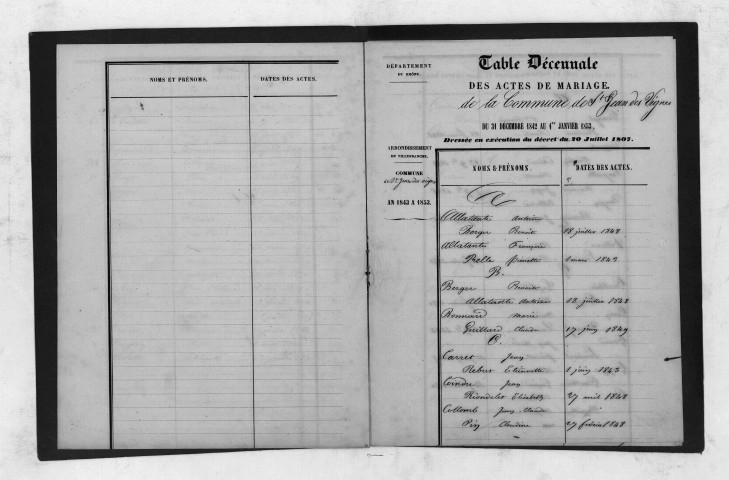 NOMS ET PRÉNOMS.
DATES DES ACTES.
DÉPARTEMENT
DU RHÔNE.
ARRONDISSEMENT
DE VILLEFRANCHE.
COMMUNE
de St Jean des Vignes
AN 1843 A 1853.
Table Décennale
DES ACTES DE MARIAGE.
de la Commune de St Jean des Vignes
DU 31 DÉCEMBRE 1842 AU 1er JANVIER 1853.
Dressée en exécution du décret du 20 Juillet 1807.
NOMS & PRÉNOMS.
DATES DES ACTES.
A
Antoine
Berger Benoit 18 juillet 1848
François
Pierrette 1843
B.
Berger Benoit
18 juillet 1848
Bonnard Marie
Guillard Claude 17 juin 1849
C.
Carret Jean
Rebut Etiennette 1 juin 1843
Coindre Jean
Riondelet Elisabeth 27 avril 1848
Collomb Jean Claude
Pin Claudine 27 février 1848